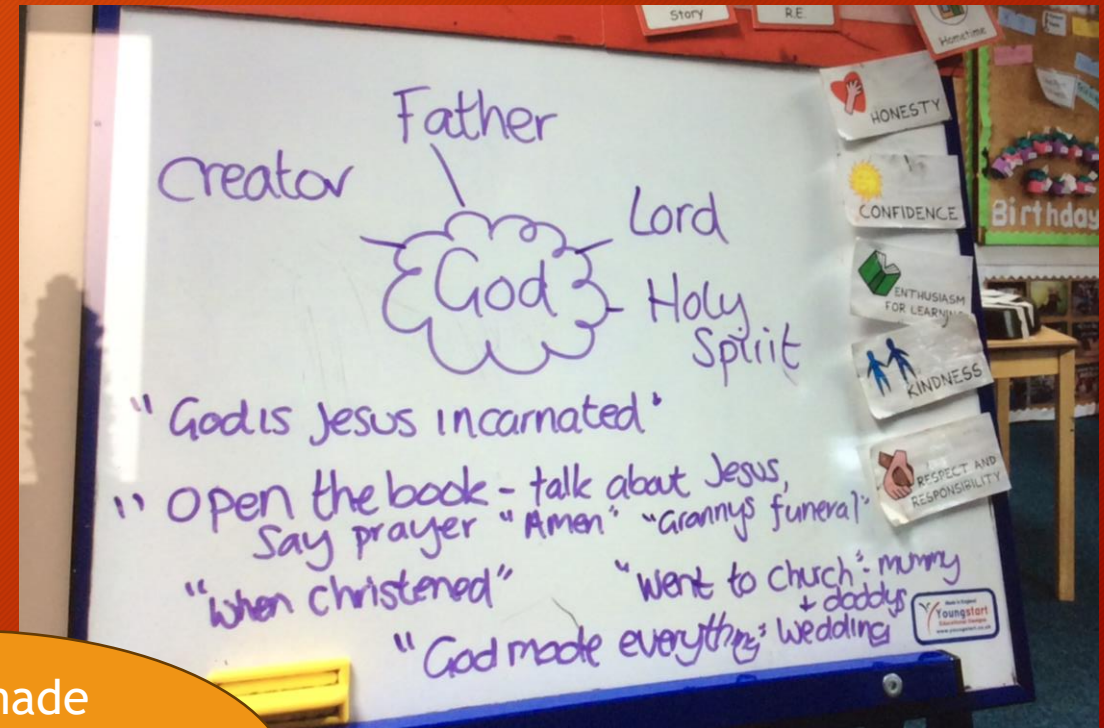 Story
R.E.
Hometime
Father
Creator
Lord
God
Holy
Spirit
"God is Jesus incarnated"
"Open the book - talk about Jesus,
Say prayer "Amen" "Grannys funeral"
"when christened"
"went to church" - mummy
+ daddys
wedding
"God made everything"
HONESTY
CONFIDENCE
ENTHUSIASM
FOR LEARNING
KINDNESS
RESPECT AND
RESPONSIBILITY
Birthday
Made in England
Youngstart
Educational Designs
www.youngstart.co.uk